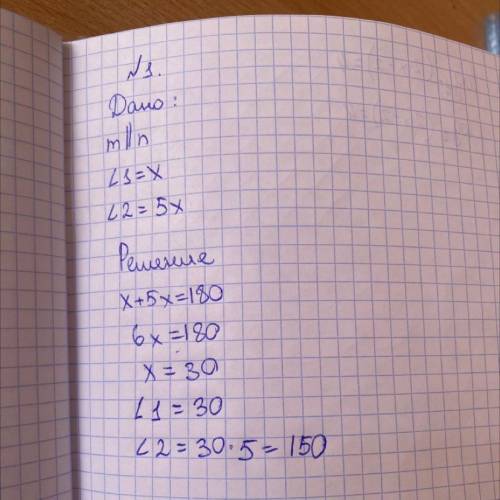 №1.
Дано:
m||n
∠1=x
∠2=5x
Решение
x+5x=180
6x=180
x=30
∠1=30
∠2=30·5=150